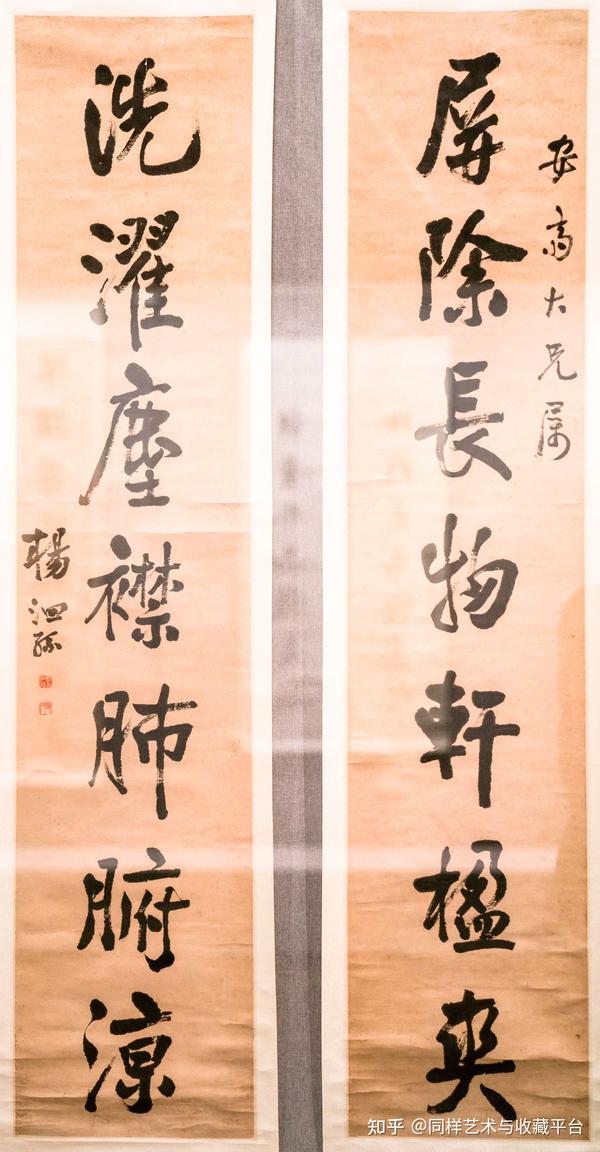 安大兄属
屏除長物軒楹爽
洗濯塵襟肺腑涼
楊泗孫
知乎 @同样艺术与收藏平台